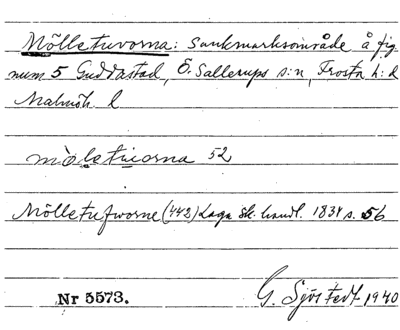 Mölletuvorna: Sankmarksområde å fig.
num 5 Guddastad, Ö. Sallerups s:n, Frosta h:d
Malmöh. l
mòletuvorna 52
Mölletufworne (442) Laga sk. handl. 1838 s. 56
Nr 5573.
G. Sjöstedt 1940